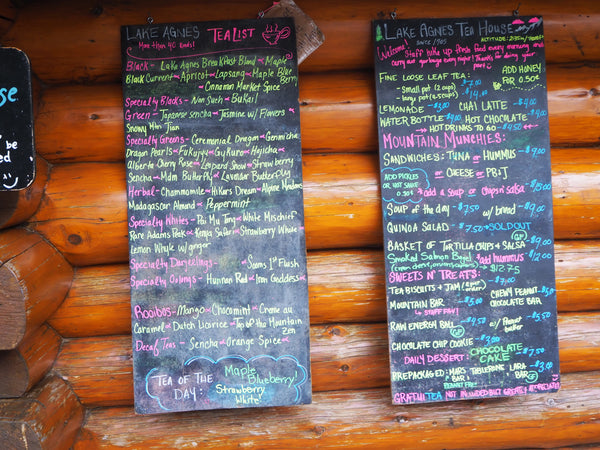 se.
be
ed
LAKE AGNES TEA LIST
More than 90 kinds!
Black - Lake Agnes Breakfast Blend Maple
Black Currant Apricot Lapsang Maple Blue Berry
Cinnamon Market Spice
Specialty Blacks - Nan Sueh - BuKail
Green - Japanese Sencha Jasmine w/ Flowers
Snowy Mtn Jian
Specialty Greens - Ceremonial Dragon Genmicha
Dragon Pearls Fukujyu Gykuro Hojicha
Alberta Cherry Rose Leopard Snow Strawberry
Sencha Mdm Butterfly Lavender Butterfly
Herbal - Chammomile Hikers Dream Alpine
Madagascar Almond Peppermint
Specialty Whites - Pai Mu Tang White Mischief
Rare Adams Peak Kenya Safari Strawberry White
Lemon Whyle w/ginger
Specialty Darjeelings - Sooms 1st Flush
Specialty Oolongs - Hunnan Red Iron Goddess
Rooibos - Mango Chocomint Creme au
Caramel Dutch Licorice Top of the Mountain
Zen
Decaf Teas - Sencha Orange Spice
TEA OF THE DAY:
Maple Blueberry!
Strawberry White!
LAKE AGNES TEA HOUSE
since 1905
ALTITUDE: 2135m/7005ft
Welcome! Staff hike up fresh food every morning and
carry out garbage every night! Thanks for doing your
part!
FINE LOOSE LEAF TEA:
- Small pot (2 cups)
- large pot (4.5 cups)
ADD HONEY FOR 0.50¢
LEMONADE - $3.00 CHAI LATTE - $4.00
WATER BOTTLE $4.00 HOT CHOCOLATE - $4.00
HOT DRINKS TO GO - $4.50
MOUNTAIN MUNCHIES:
SANDWICHES: TUNA or HUMMUS - $9.00
or CHEESE or PB+J
ADD PICKLES OR NOT SAUCE 0.50¢
add a soup or chips n' salsa - $15.00
SOUP of the day - $7.50 w/ bread - $9.00
QUINOA SALAD - $7.50 SOLD OUT
GF
BASKET OF TORTILLA CHIPS + SALSA - $9.00
Smoked Salmon Bagel
$12.75
+add hummus $12.00
SWEETS N' TREATS:
TEA BISCUITS + JAM - $7.00
MOUNTAIN BAR - $5.00
STAFF FAV!
CHEWY PEANUT CHOCOLATE BAR - $5.50
RAW ENERGY BALL - $4.50
w/ peanut butter - $5.50
GF
CHOCOLATE CHIP COOKIE - $3.00
DAILY DESSERT: CHOCOLATE CAKE - $7.50
PREPACKAGED: MARS BAR TOBLERONE LARA BAR - $3.00
PEANUT FREE
GF
GRATUITEA NOT INCLUDED BUT GREATLY APPRECIATED